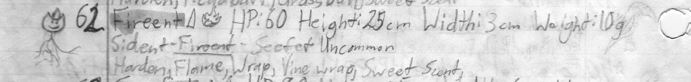 62 Fireent HP:60 Height:25cm Width:3cm Weight:10g
Sident-Fireent-Seofet Uncommon
Harden, Flame, Wrap, Vine wrap, Sweet Scent,